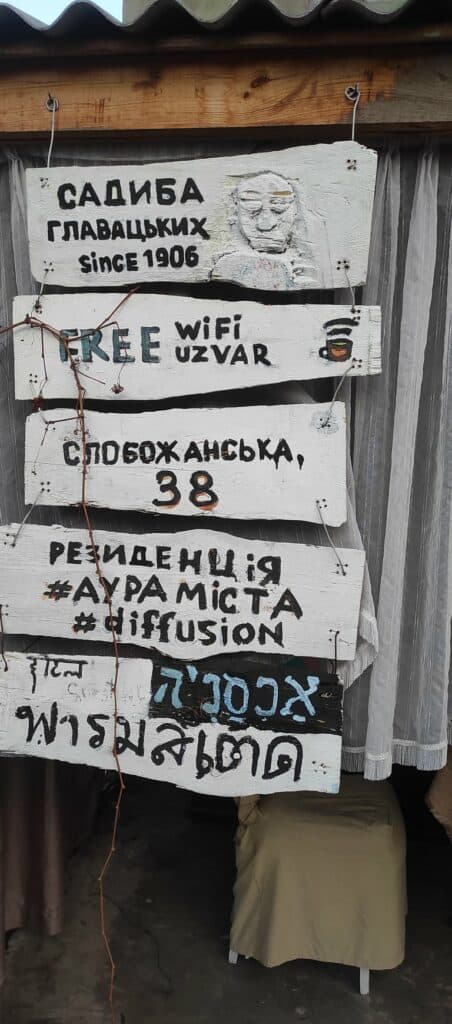 САДИБА
ГЛАВАЦЬКИХ
Since 1906
FREE WiFi UZVAR
СЛОБОЖАНСЬКА,
38
РЕЗИДЕНЦІЯ
#АУРА МІСТА
#diffusion
אַכְסַנְיָה
ฟาร์มสเตด